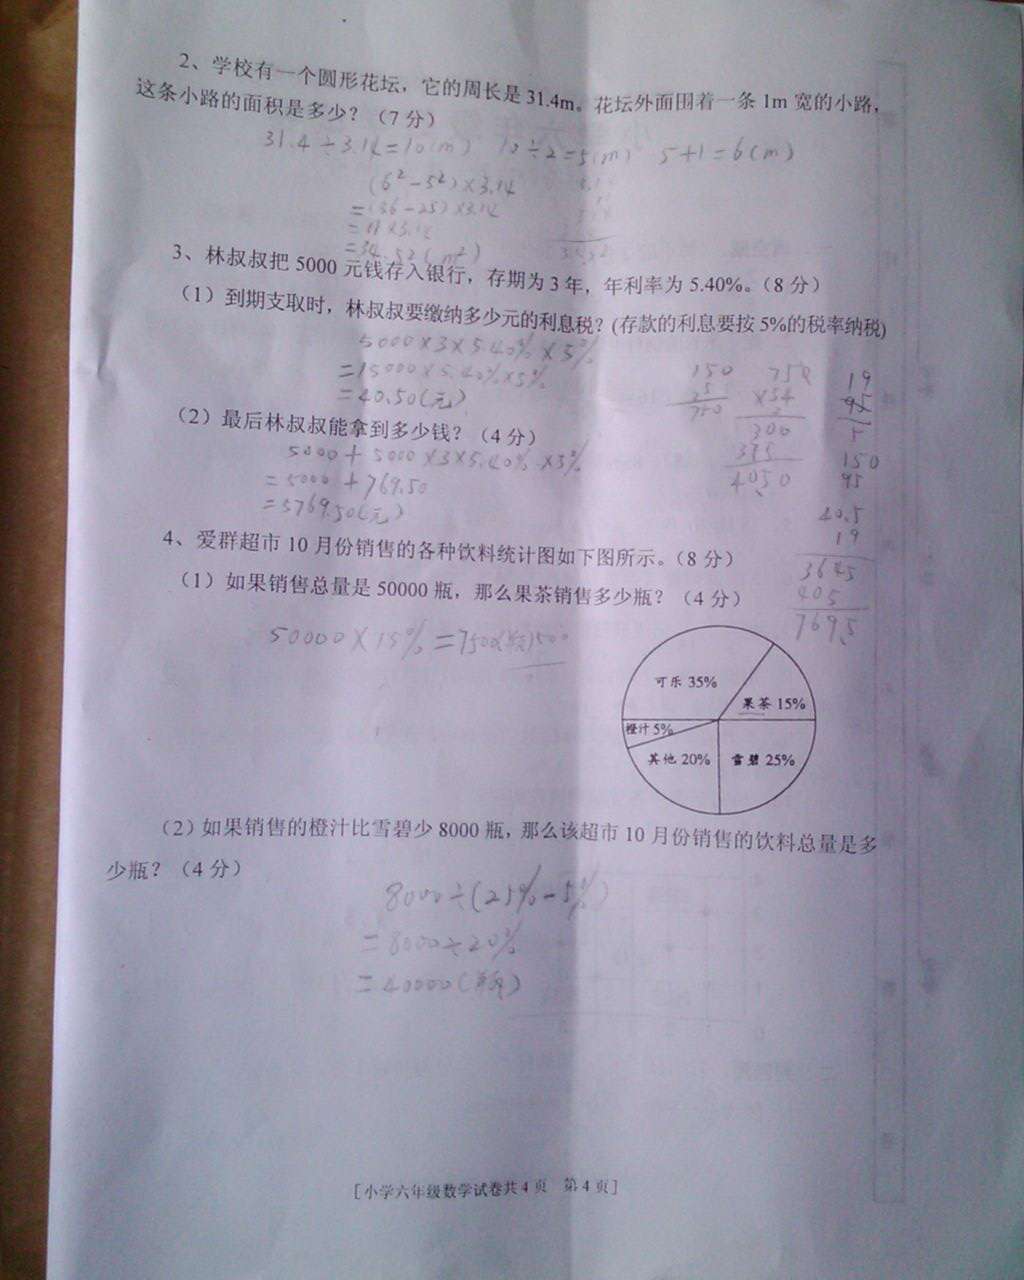 2、学校有一个圆形花坛，它的周长是31.4m。花坛外面围着一条1m宽的小路，
这条小路的面积是多少？（7分）
31.4÷3.14=10(m) 10÷2=5(m) 5+1=6(m)
(6²-5²)×3.14
=(36-25)×3.14
=11×3.14
=34.52(m²)
3、林叔叔把5000元钱存入银行，存期为3年，年利率为5.40%。（8分）
（1）到期支取时，林叔叔要缴纳多少元的利息税？(存款的利息要按5%的税率纳税)
5000×3×5.40%×5%
=15000×5.40%×5%
=40.50(元)
150 750 19
×54
750
300
375
4050
150
95
（2）最后林叔叔能拿到多少钱？（4分）
5000+5000×3×5.40%×5%
=5000+769.50
=5769.50(元)
40.5
19
3645
405
769.5
4、爱群超市10月份销售的各种饮料统计图如下图所示。（8分）
（1）如果销售总量是50000瓶，那么果茶销售多少瓶？（4分）
50000×15%=7500(瓶)
可乐35%
果茶15%
橙汁5%
其他20%
雪碧25%
（2）如果销售的橙汁比雪碧少8000瓶，那么该超市10月份销售的饮料总量是多
少瓶？（4分）
8000÷(25%-5%)
=8000÷20%
=40000(瓶)
[小学六年级数学试卷共4页 第4页]